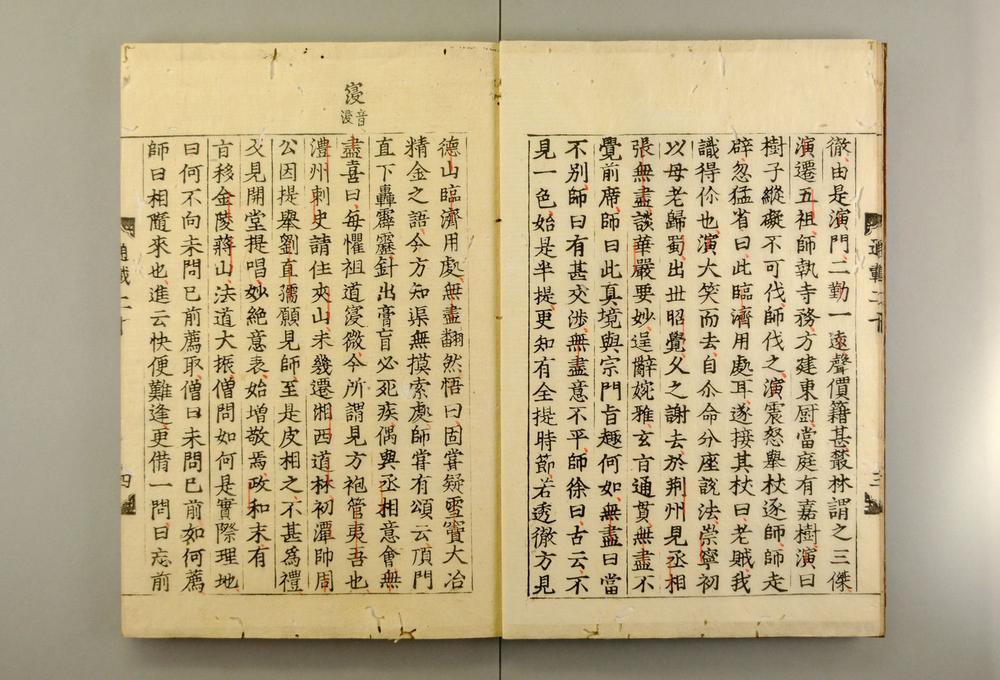 徹由是演門二勤一遠聲價籍甚叢林謂之三傑
演遷五祖師執寺務方建東厨當庭有嘉樹演曰
樹子縱礙不可伐師伐之演震怒舉杖逐師師走
辟忽猛省曰此臨濟用處耳遂接其杖曰老賊我
識得你也演大笑而去自尒命分座說法崇寧初
以母老歸蜀出丗昭覺久之謝去於荆州見丞相
張無盡談華嚴要妙逞辭婉雅玄旨通貫無盡不
覺前席師曰此真境與宗門旨趣何如無盡曰當
不别師曰有甚交涉無盡意不平師徐曰古云不
見一色始是半提更知有全提時節若透徹方見
三
德山臨濟用處無盡翻然悟曰固嘗疑雪竇大冶
精金之語今方知渠無摸索處師嘗有頌云頂門
直下轟霹靂針出膏肓必死疾偶與丞相意會無
盡喜曰每懼祖道寖微今所謂見方袍管夷吾也
寖
音
澧州刺史請住夾山未幾遷湘西道林初潭帥周
公因提舉劉直孺願見師至是皮相之不甚爲禮
及見開堂提唱妙絶意表始增敬焉政和末有
旨移金陵蔣山法道大振僧問如何是實際理地
曰何不向未問已前薦取僧曰未問已前如何薦
師曰相隨來也進云快便難逢更借一問曰忘前
通載二十
四